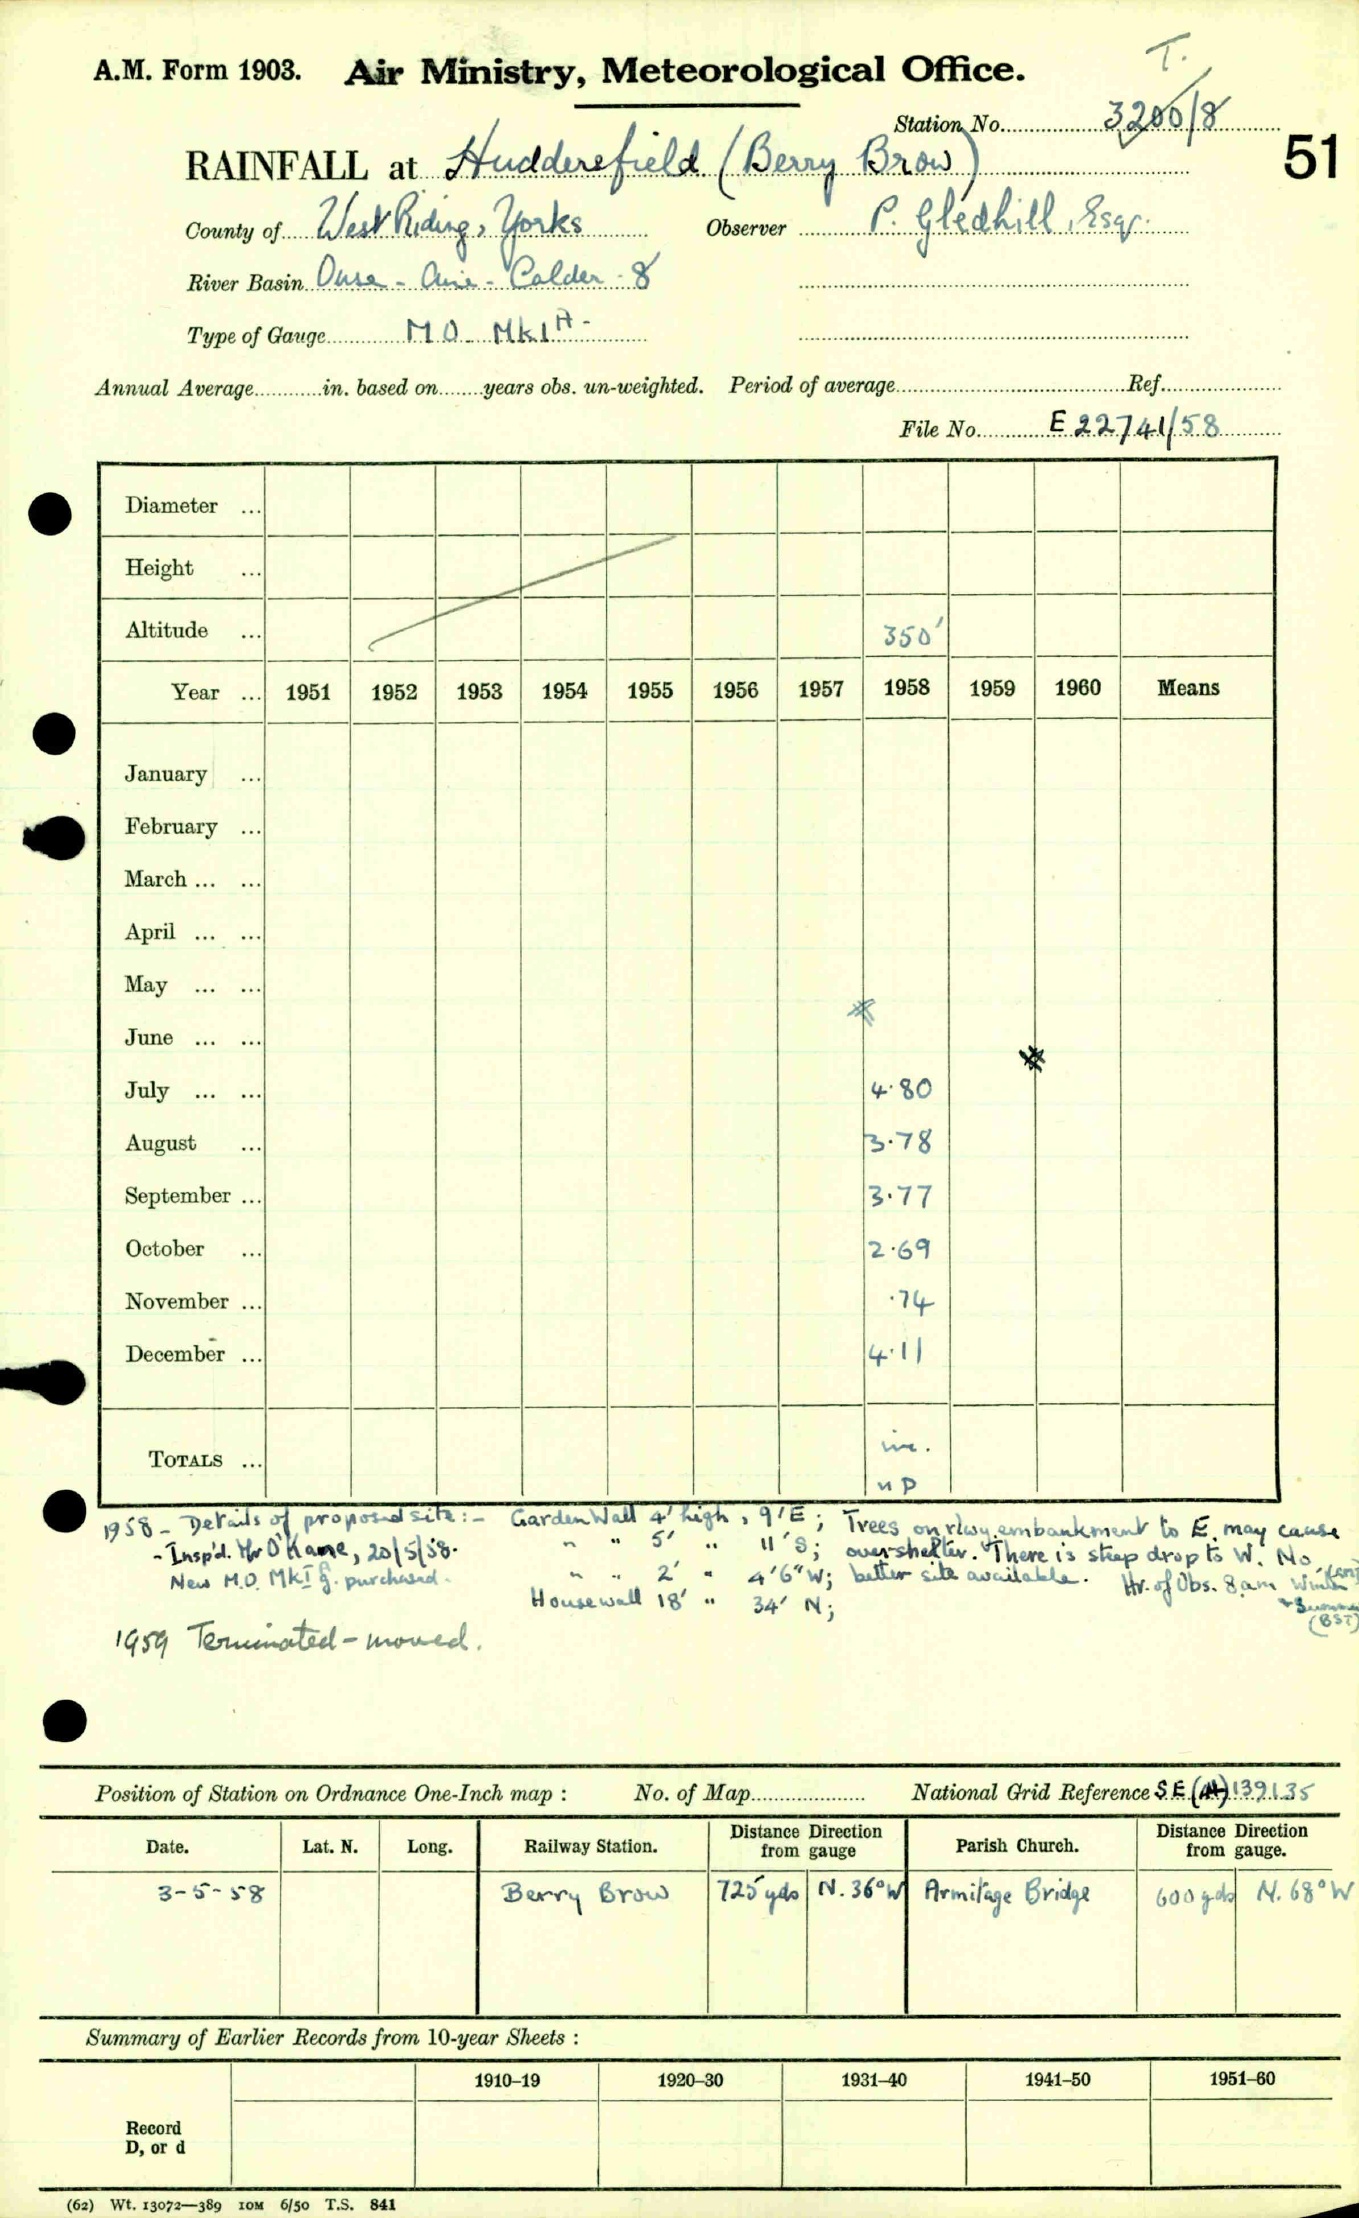 T.
A.M. Form 1903. Air Ministry, Meteorological Office.
Station No. 3200/8
51
RAINFALL at Huddersfield (Berry Brow)
County of West Riding, Yorks Observer P. Gledhill, Esq.
River Basin Ouse - Aire - Calder - 8
Type of Gauge M O MkI
Annual Average in. based on years obs. un-weighted. Period of average Ref.
File No. E 22741/58
Diameter ...
Height ...
Altitude ... 350'
Year ... 1951 1952 1953 1954 1955 1956 1957 1958 1959 1960 Means
January ...
February ...
March ... ...
April ... ...
May ... ...
June ... ...
July ... ... 4.80
August ... 3.78
September ... 3.77
October ... 2.69
November ... .74
December ... 4.11
TOTALS ... inc.
n p
1958 - Details of proposed site :- Garden Wall 4' high, 9' E; Trees on rlwy. embankment to E. may cause
- Insp'd. Mr O'Kane, 20/5/58. " " 5' " 11' S; overshelter. There is steep drop to W. No
New M.O. MkI g. purchased. " " 2' " 4'6" W; better site available. Hr. of Obs. 8 am Winter
House wall 18' " 34' N; + Summer
(BST)
1959 Terminated - moved.
Position of Station on Ordnance One-Inch map : No. of Map National Grid Reference SE (44) 139135
Date. Lat. N. Long. Railway Station. Distance Direction from gauge Parish Church. Distance Direction from gauge.
3-5-58 Berry Brow 725 yds N. 36° W Armitage Bridge 600 yds N. 68° W
Summary of Earlier Records from 10-year Sheets :
1910–19 1920–30 1931–40 1941–50 1951–60
Record
D, or d
(62) Wt. 13072—389 10M 6/50 T.S. 841